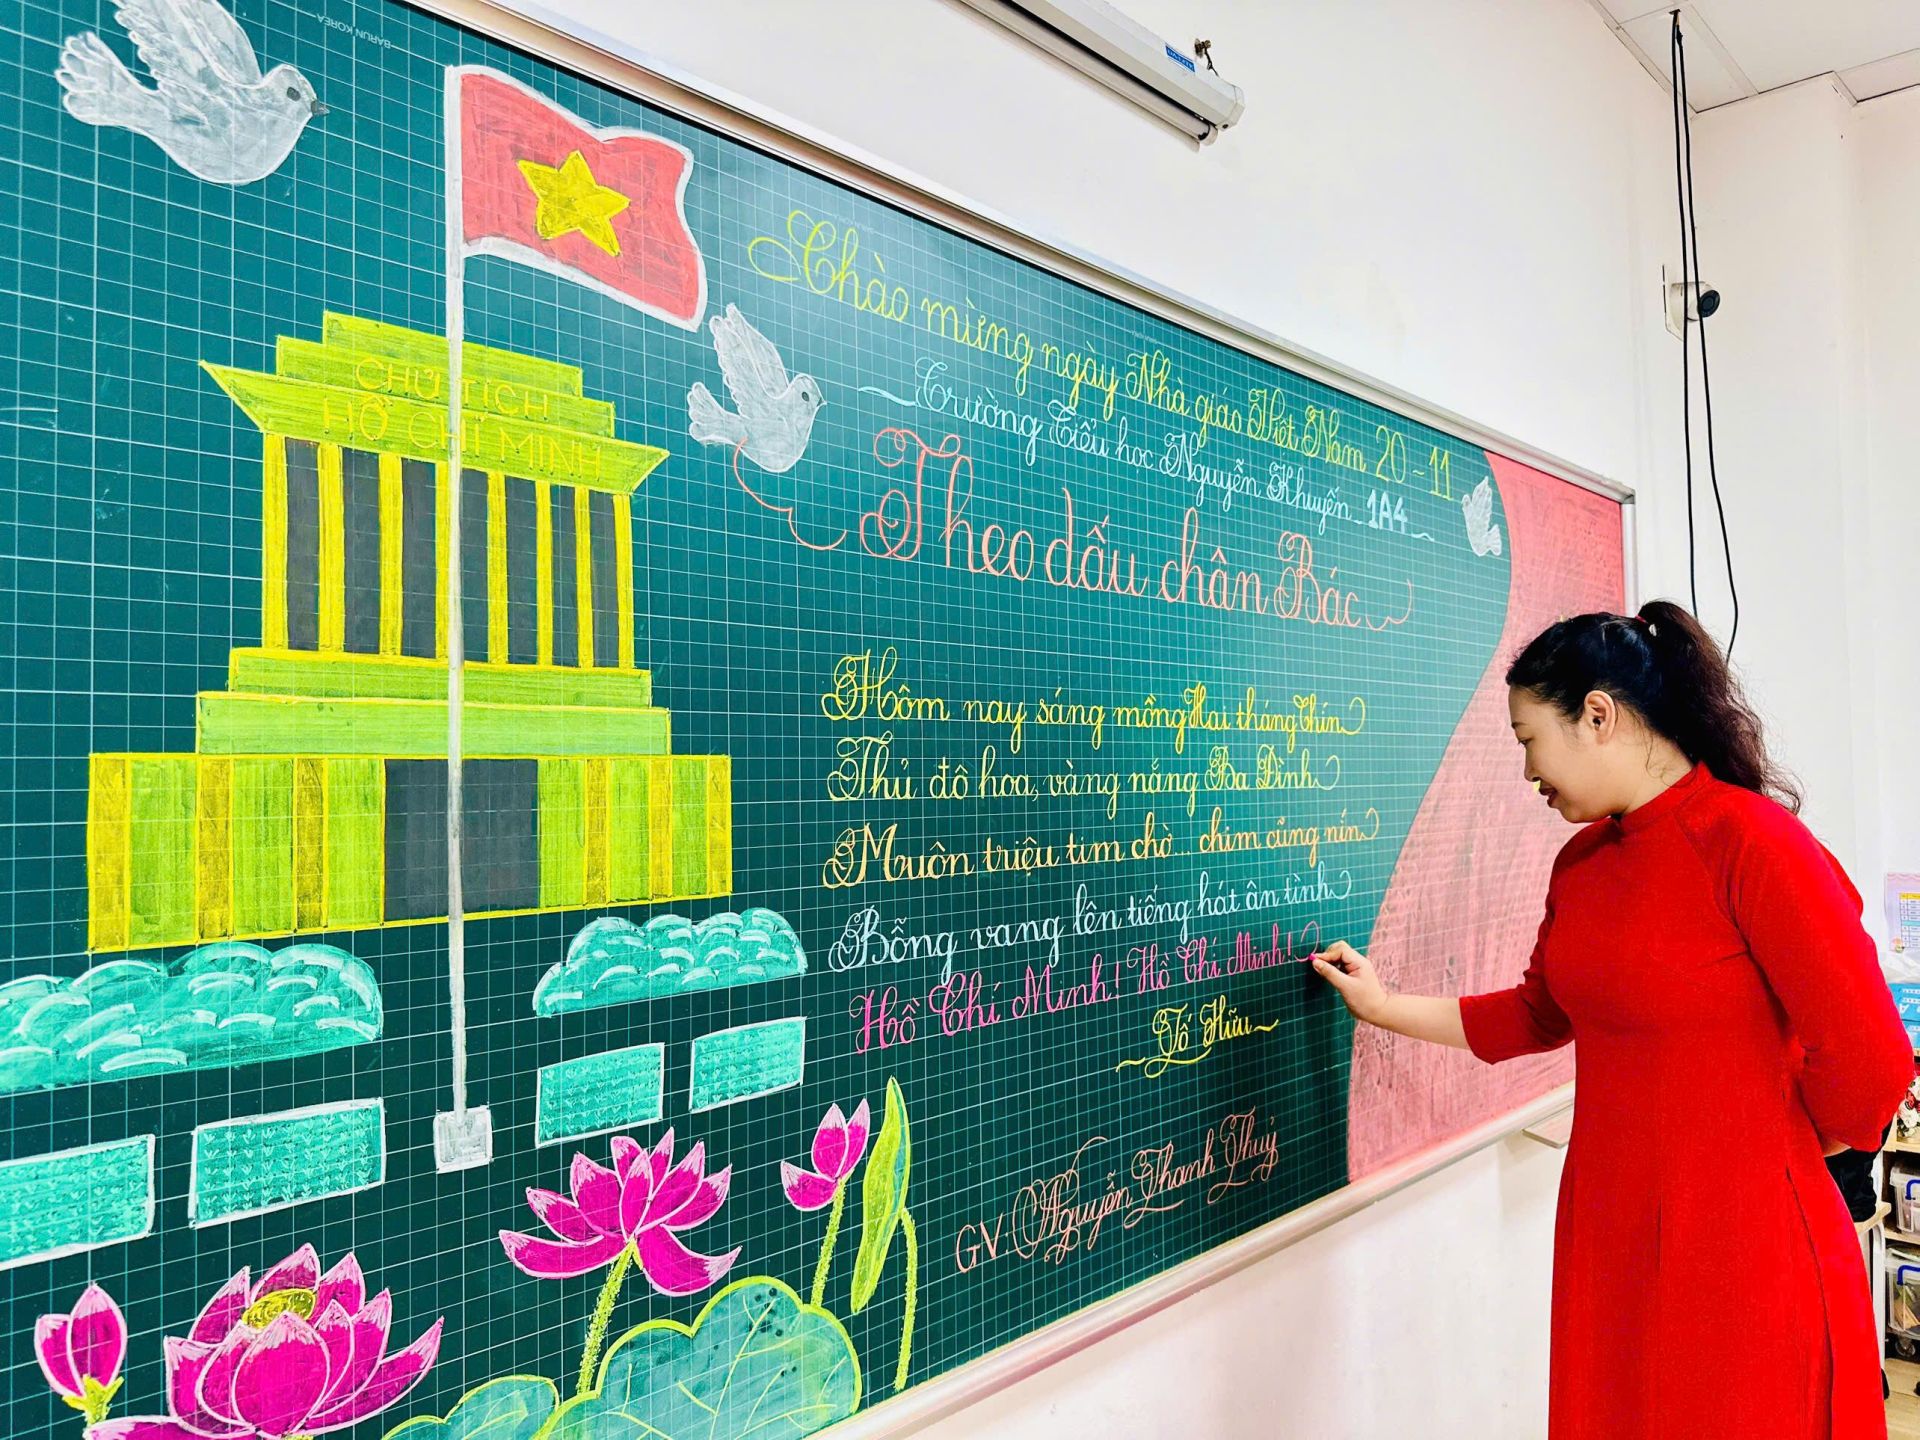 BARUN KOREA
CHỦ TỊCH
HỒ CHÍ MINH
Chào mừng ngày Nhà giáo Việt Nam 20 - 11
Trường Tiểu học Nguyễn Khuyến - 1A4
Theo dấu chân Bác
Hôm nay sáng mồng Hai tháng Chín
Thủ đô hoa, vàng nắng Ba Đình
Muôn triệu tim chờ... chim cũng nín
Bỗng vang lên tiếng hát ân tình
Hồ Chí Minh! Hồ Chí Minh!
Tố Hữu
GV. Nguyễn Thanh Thuỷ